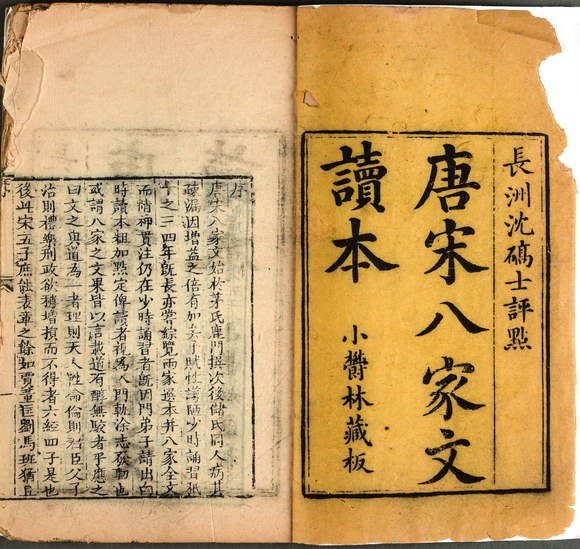 長洲沈碻士評點
唐宋八家文
讀本
小欝林藏板
序
唐宋八家文始於茅氏鹿門撰次後儲氏同人病其
疎漏因增益之倍有加矣予賦性謭陋少時誦習祇
十之三四年旣長亦嘗綜覽兩家選本并八家全文
而精神貫注仍在少時誦習者旣因門弟子請出向
時讀本粗加點定俾讀者視為入門軌涂志發軔也
或謂八家之文果皆以言載道有醇無駁者乎應之
曰文之與道為一者理則天人性命倫則君臣父子
治則禮樂刑政欲稍增損而不得者六經四子是也
後此宋五子庶能表章之餘如賈董匡劉馬班猶且
序